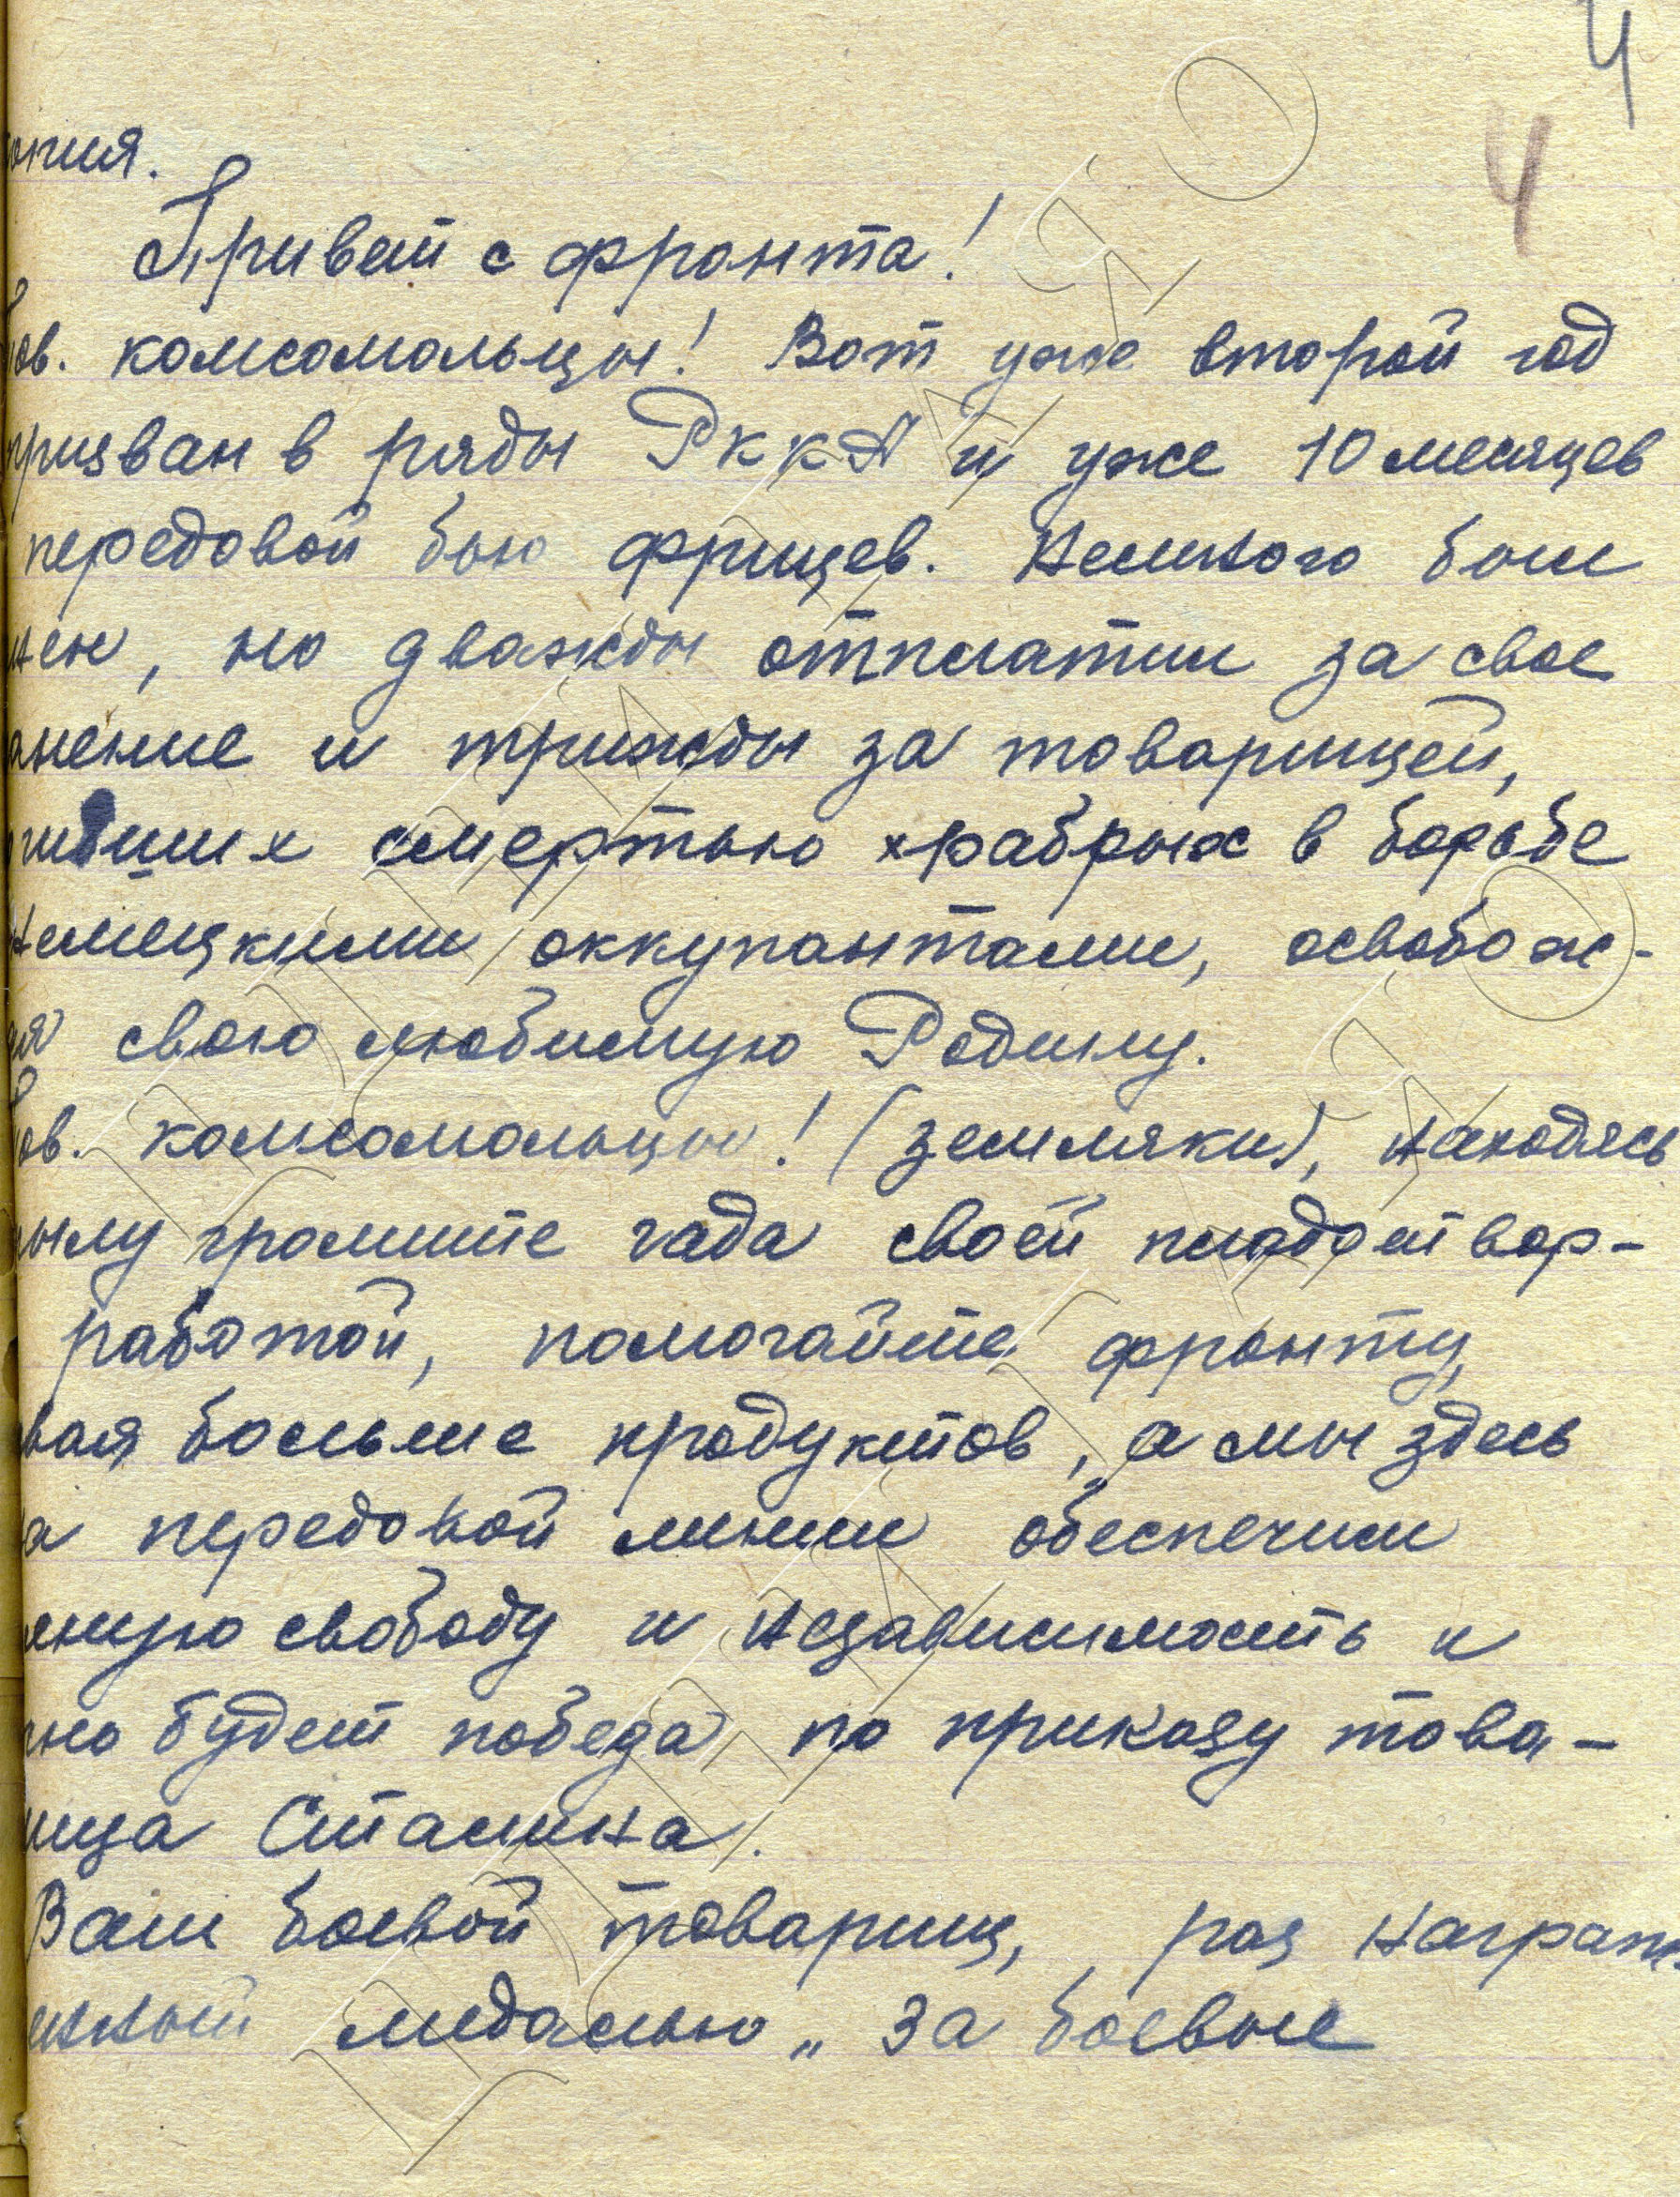 4
4
опия.
Привет с фронта!
тов. комсомольцы! Вот уже второй год
призван в ряды РККА и уже 10 месяцев
передовой бью фрицев. Немного был
нен, но дважды отплатил за свое
анение и трижды за товарищей,
гивших смертью храбрых в борьбе
немецкими оккупантами, освобож-
ая свою любимую Родину.
Тов. комсомольцы! (земляки), находясь
тылу громите гада своей плодотвор-
работой, помогайте фронту,
вая больше продуктов, а мы здесь
на передовой линии обеспечим
лную свободу и независимость и
но будет победа по приказу това-
ища Сталина.
Ваш боевой товарищ, раз награж-
енный медалью „За боевые